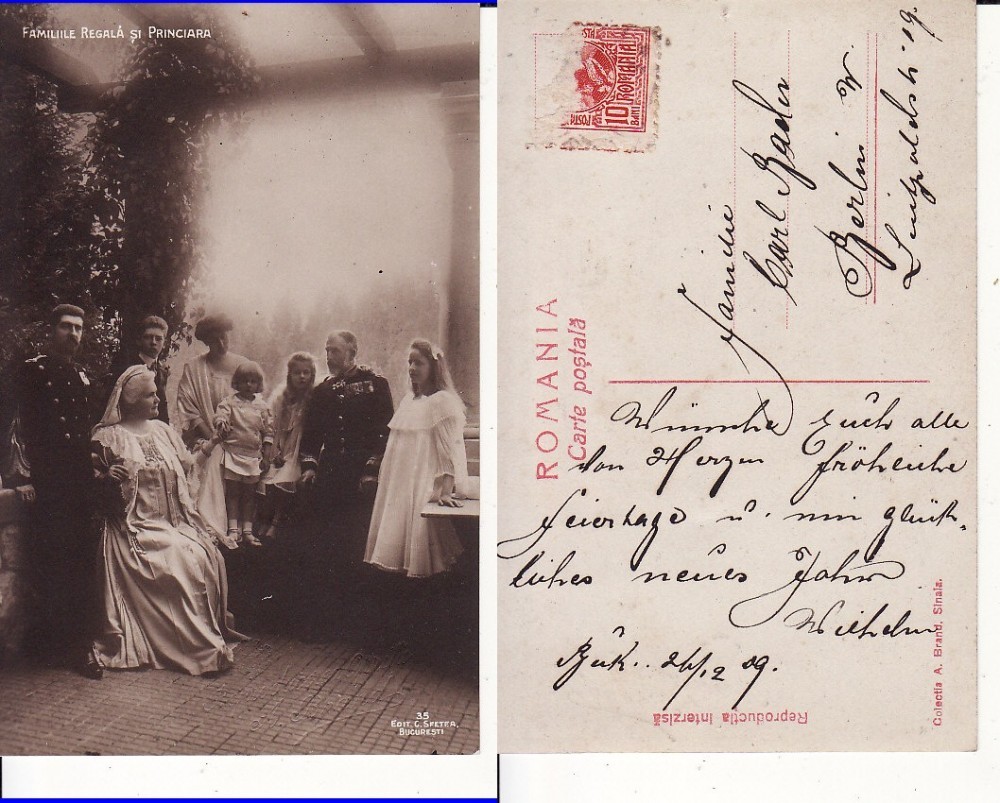 FAMILIILE REGALĂ ȘI PRINCIARA
35
EDIT. C. SFETEA,
BUCUREȘTI
POSTA
ROMANIA
10 BANI
POSTA
Familie
Carl Bader
Berlin W
Luitpoldstr. 19.
ROMANIA
Carte poștală
Wünsche Euch alle
von Herzen fröhliche
Feiertage u. ein glück-
liches neues Jahr
Wilhelm
Buk. 26/12 09.
Reproducția Interzisă
Colectia A. Brand, Sinaia.